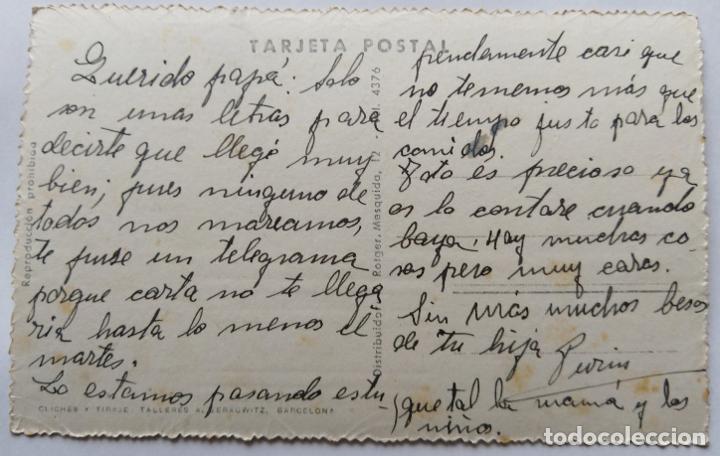 TARJETA POSTAL
Querido papá: Solo
son unas letras para
decirte que llegé muy
bien; pues ninguno de
todos nos mareamos,
te puse un telegrama
porque carta no te llega
ria hasta lo menos el
martes.
Lo estamos pasando estu-
pendamente casi que
no tenemos más que
el tiempo justo para las
comidas.
Esto es precioso ya
os lo contare cuando
baya. Hay muchas co
sas pero muy caras.
Sin más muchos besos
de tu hija
¿que tal la mamá y los
niños.
Reproducción prohibida
Distribuidor: Rotger, Mosquida, 12
4376
CLICHES Y TIRAJE: TALLERES A. ZERKOWITZ, BARCELONA
todocoleccion.net